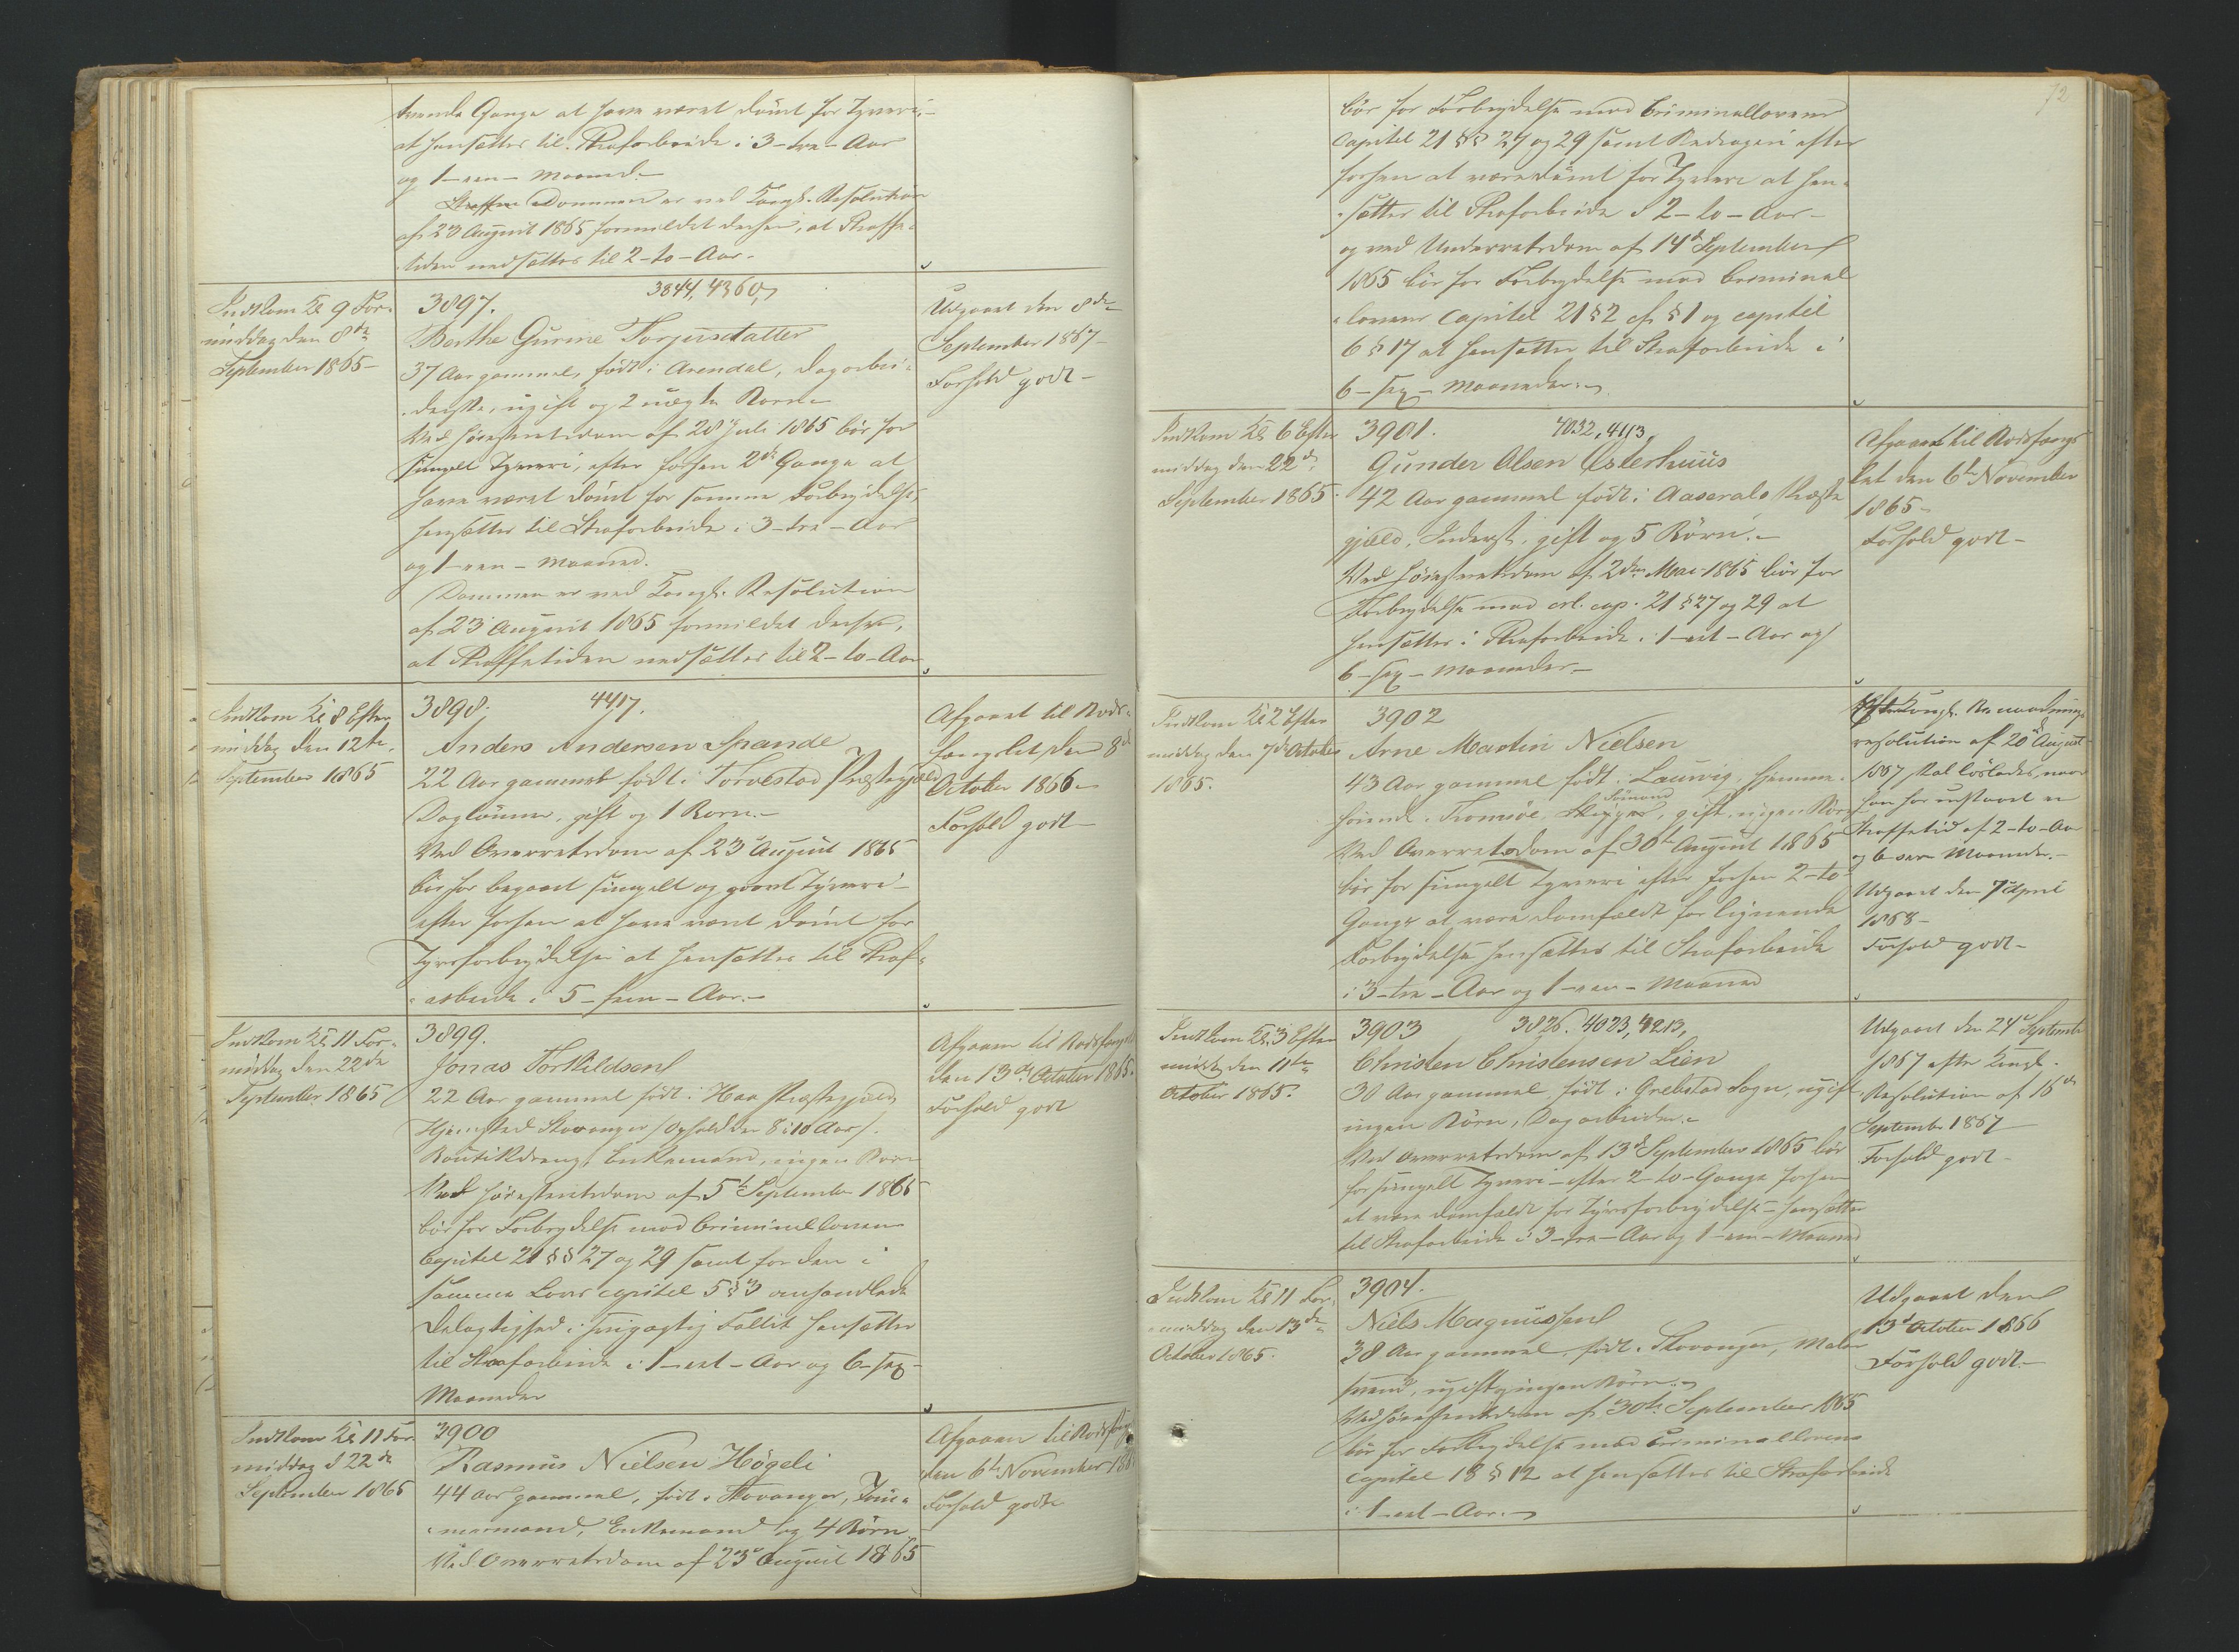 tvende Gange at have været dömt for Tyveri,-
at hensættes til Strafarbeide i 3-tre-Aar
og 1-een-Maaned.-
Straffen Dommen er ved Kongl. Resolution
af 23 August 1865 formildet derhen, at Straffe-
tiden nedsættes til 2-to-Aar.
Indkom Kl 9 For-
middag den 8de
September 1865-
3897. 3844, 4360,
Berthe Gurine Torjusdatter
37 Aar gammel, födt i Arendal, Dagarbei-
derske, ugift og 2 uægte Börn-
Ved Höiesteretsdom af 28 Juli 1865 bör for
simpelt Tyveri, efter forhen 2de Gange at
have været dömt for samme Forbrydelse,
hensættes til Strafarbeide i 3-tre-Aar
og 1-een-Maaned.
Dommen er ved Kongl. Resolution
af 23 August 1865 formildet derhen,
at Straffetiden nedsættes til 2-to-Aar
Udgaaet den 8de
September 1867-
Forhold godt-
Indkom Kl 8 Efter
middag den 12te
September 1865
3898. 4417.
Anders Andersen Spande
22 Aar gammel födt i Torvestad Præstegjæld
Daglönner, gift og 1 Barn.-
Ved Overretsdom af 23 August 1865
bör for begaaet simpelt og grovt Tyveri-
efter forhen at have været dömt for
Tyvsforbrydelse at hensættes til Straf-
arbeide i 5-fem-Aar.-
Afgaaet til Bods-
fængslet den 8de
October 1866-
Forhold godt-
Indkom Kl 11 For-
middag den 22de
September 1865
3899.
Jonas Torkildsen
22 Aar gammel födt i Haa Præstegjæld
Hjemsted Stavanger (Ophold der 8 à 10 Aar).
Boutikdreng, Enkemand, ingen Börn
Ved Höiesteretsdom af 5te September 1865
bör for Forbrydelse mod Criminalloven
Capitel 21 §§ 27 og 29 samt for den i
samme Lovs capitel 5 § 3 omhandlede
Delagtighed i svigagtig Fallit hensættes
til Strafarbeide i 1-eet-Aar og 6-sex-
Maaneder
Afgaaet til Bodsfængslet
den 13de October 1865.
Forhold godt
Indkom Kl 11 For
middag d 22de
September 1865
3900
Rasmus Nielsen Högeli
44 Aar gammel, födt i Stavanger, Töm-
mermand, Enkemand og 4 Börn
Ved Overretsdom af 23 August 1865
Afgaaet til Bodsfængs
den 6te November 186
Forhold godt
72
bör for Forbrydelse mod Criminallovens
Capitel 21 §§ 27 og 29 samt Bedrageri efter
forhen at være dömt for Tyveri at hen-
sættes til Strafarbeide i 2-to-Aar-
og ved Underretsdom af 14de September
1865 bör for Forbrydelse mod Criminal
lovens Capitel 21 § 2 cf § 1 og capitel
6 § 17 at hensættes til Strafarbeide i
6-sex-Maaneder.
Indkom Kl 6 Efter
middag den 22de
September 1865.
3901. 4032, 4113,
Gunder Olsen Österhuus
42 Aar gammel födt i Aaserals Præste
gjæld, Inderst, gift og 5 Börn.-
Ved Höiesteretsdom af 2den Mai 1865 bör for
Forbrydelse mod crl. cap. 21 § 27 og 29 at
hensættes i Strafarbeide i 1-eet-Aar og
6-sex-Maaneder-
Afgaaet til Bodsfængs
let den 6te November
1865-
Forhold godt-
Indkom Kl 2 Efter
middag den 7de October
1865.
3902
Arne Martin Nielsen
43 Aar gammel födt i Laurvig, hjemme-
hörende i Tromsöe, Skipper, Sömand gift, ingen Börn
Ved Overretsdom af 30te August 1865
bör for simpelt Tyveri efter forhen 2-to-
Gange at være domfældt for lignende
Forbrydelse hensættes til Strafarbeide
i 3-tre-Aar og 1-een-Maaned
Efter Kongl. Benaadnings
resolution af 20 August
1867 skal löslades, naar
han har udstaaet en
Straffetid af 2-to-Aar
og 6-sex Maaneder.-
Udgaaet den 7 April
1868-
Forhold godt-
Indkom Kl 3 Efter
midd. den 11te
October 1865.
3903 3826. 4023, 4213,
Christen Christensen Lien
30 Aar gammel, födt i Grebstad Sogn, ugift
ingen Börn, Dagarbeider.-
Ved Overretsdom af 13de September 1865 bör
for simpelt Tyveri-efter 2-to-Gange forhen
at være domfældt for Tyvsforbrydelse-hensættes
til Strafarbeide i 3-tre-Aar og 1-een-Maaned
Udgaaet den 24 Septemb
1867 efter Kongl.
Resolution af 16de
September 1867
Forhold godt-
Indkom Kl 11 For-
middag den 13de
October 1865.
3904.
Niels Magnussen
38 Aar gammel, födt i Stavanger, Maler
svend, ugift og ingen Börn.
Ved Höiesteretsdom af 30te September 1865
bör for Forbrydelse mod Criminallovens
Capitel 18 § 12 at hensættes til Strafarbeide
i 1-eet-Aar.
Udgaaet den
13 October 1866
Forhold godt.-